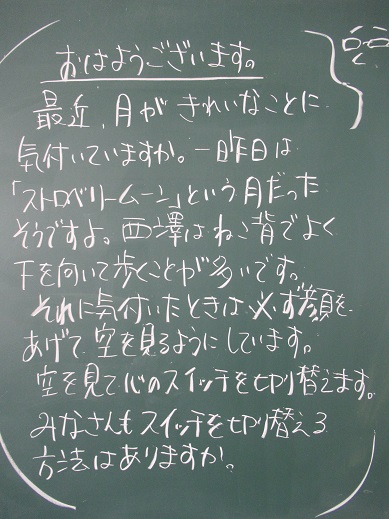 おはようございます。
最近、月がきれいなことに
気付いていますか。一昨日は
「ストロベリームーン」という月だった
そうですよ。西澤はねこ背でよく
下を向いて歩くことが多いです。
それに気付いたときは必ず顔を
あげて空を見るようにしています。
空を見て心のスイッチを切り替えます。
みなさんもスイッチを切り替える
方法はありますか。